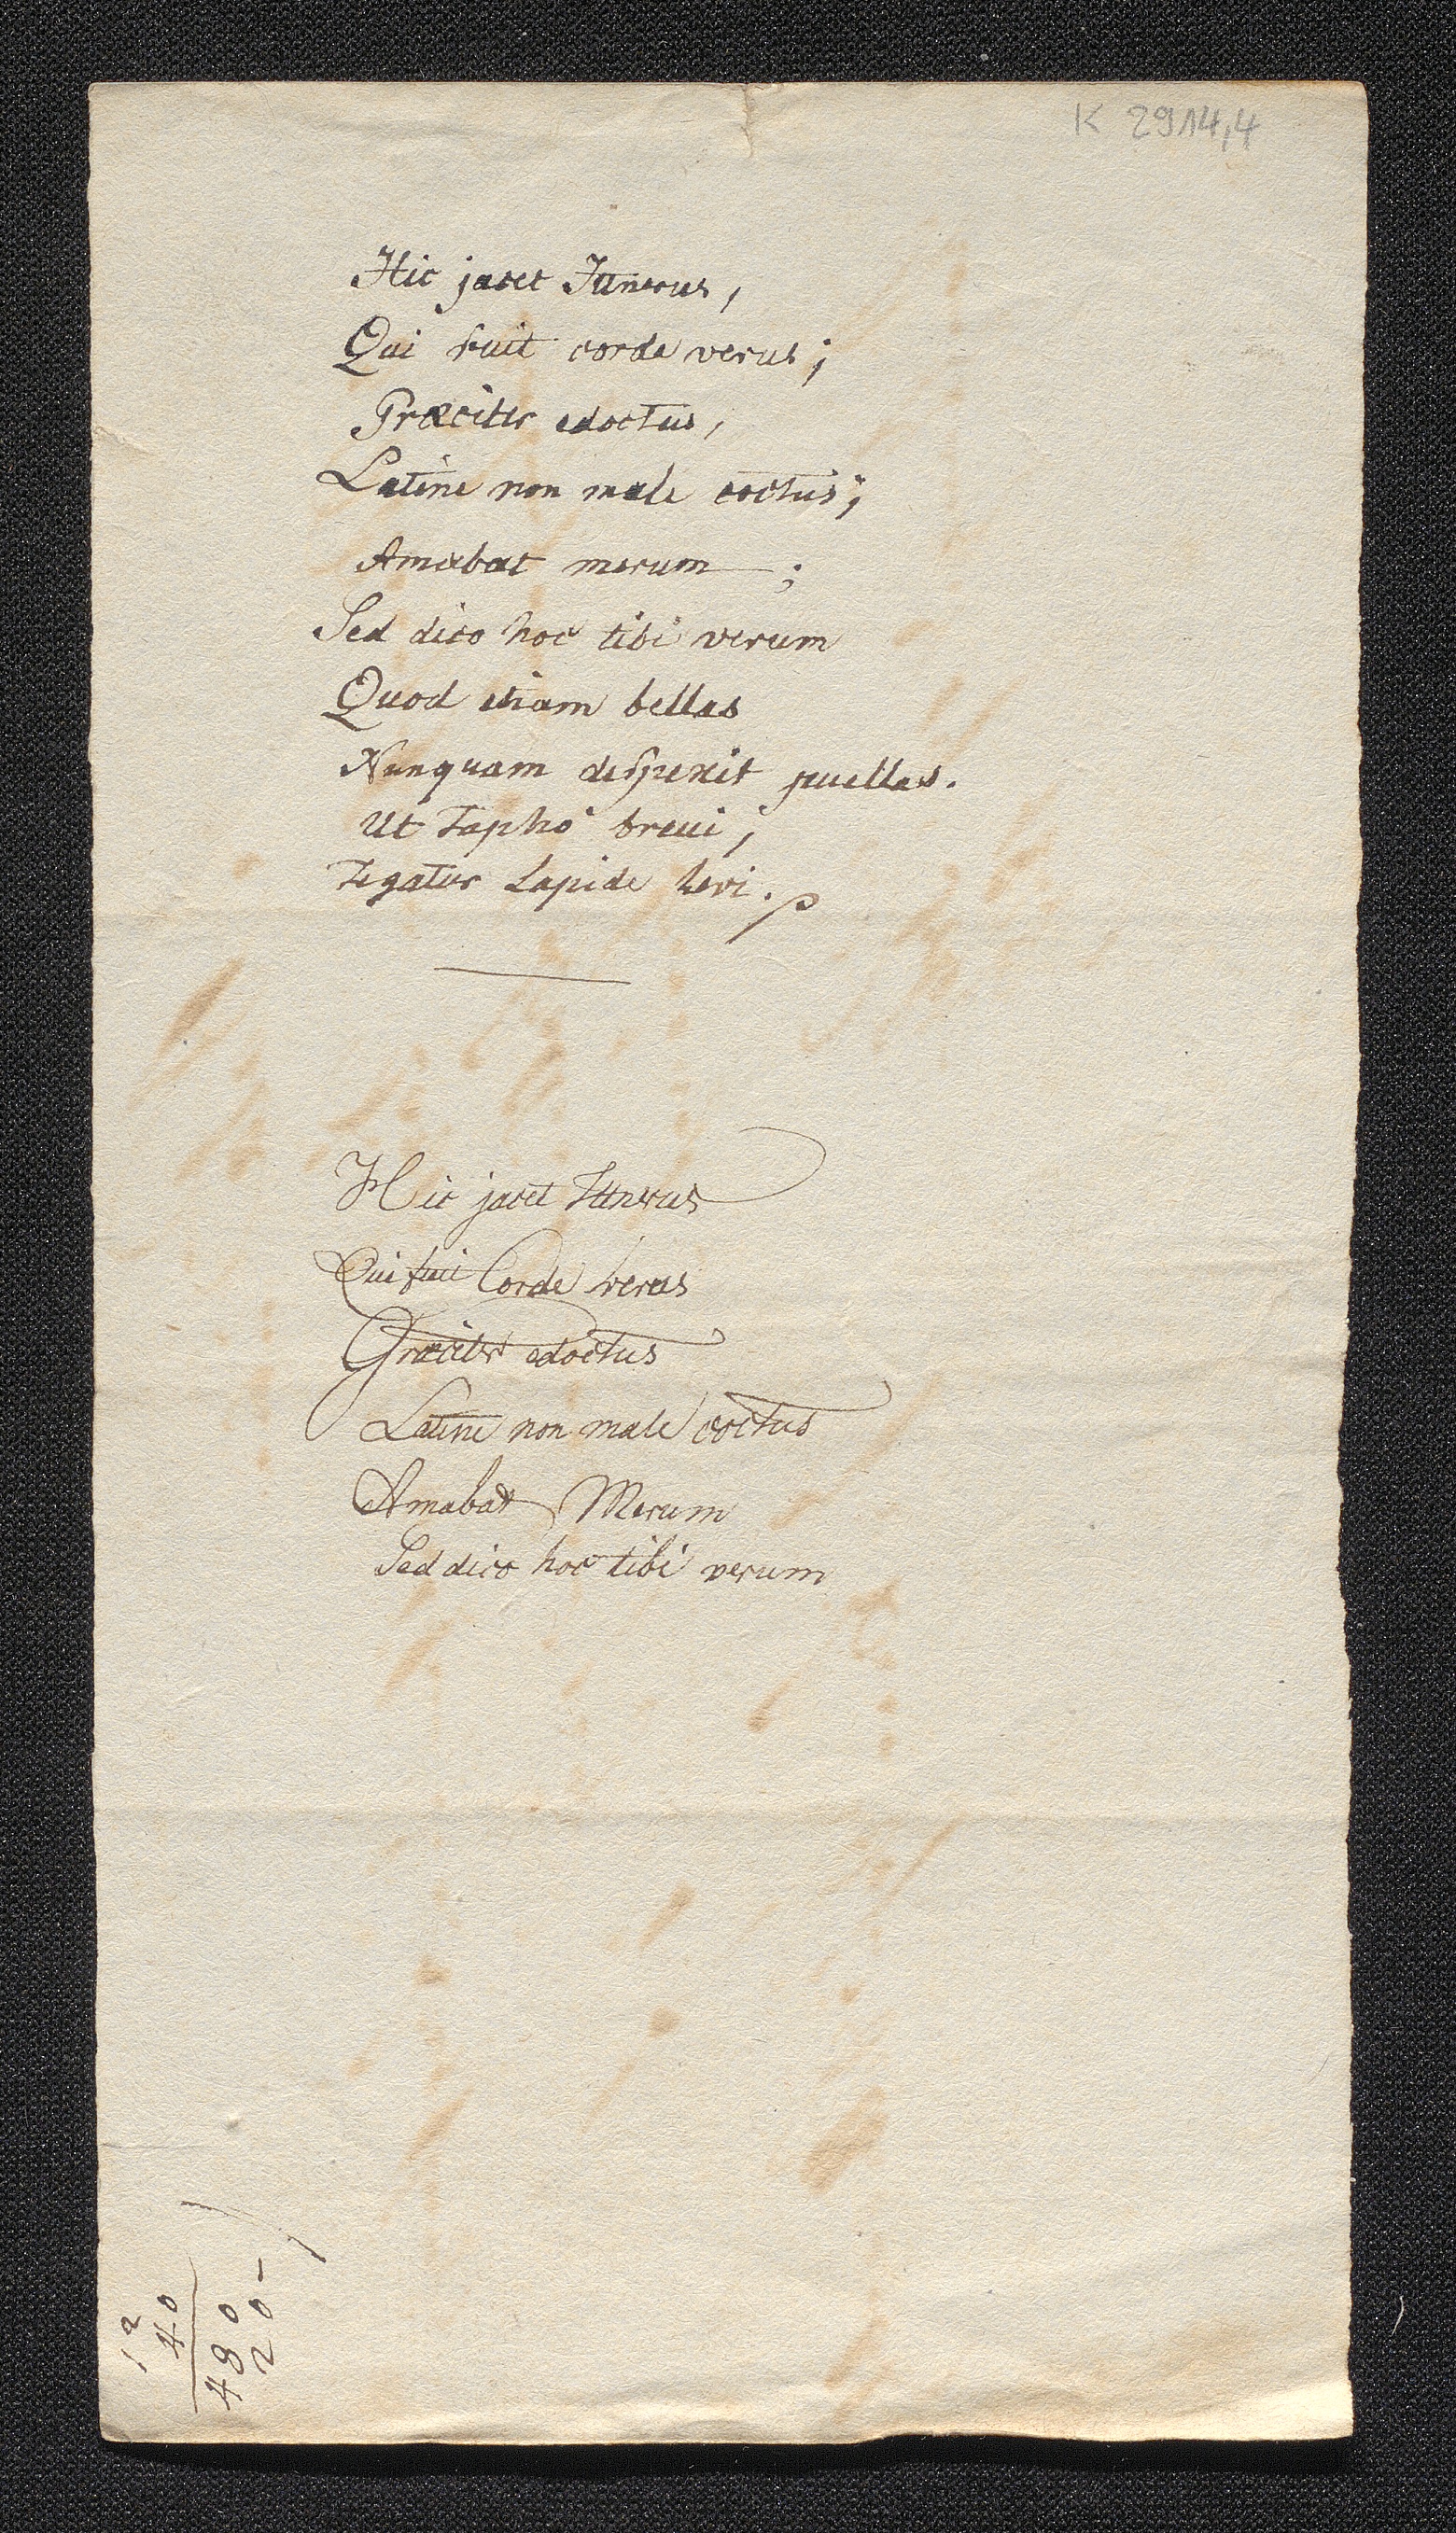 K 2914,4
Hic jacet Ittnerus,
Qui fuit corde verus;
Græciter edoctus,
Latine non male coctus;
Amabat merum;
Sed dico hoc tibi verum
Quod etiam bellas
Nunquam despexit puellas.
Ut Tapho brevi,
Tegatur Lapide levi.
Hic jacet Ittnerus
Qui fuit Corde verus
Græciter edoctus
Latine non male coctus
Amabat Merum
Sed dico hoc tibi verum
12
40
480
20-